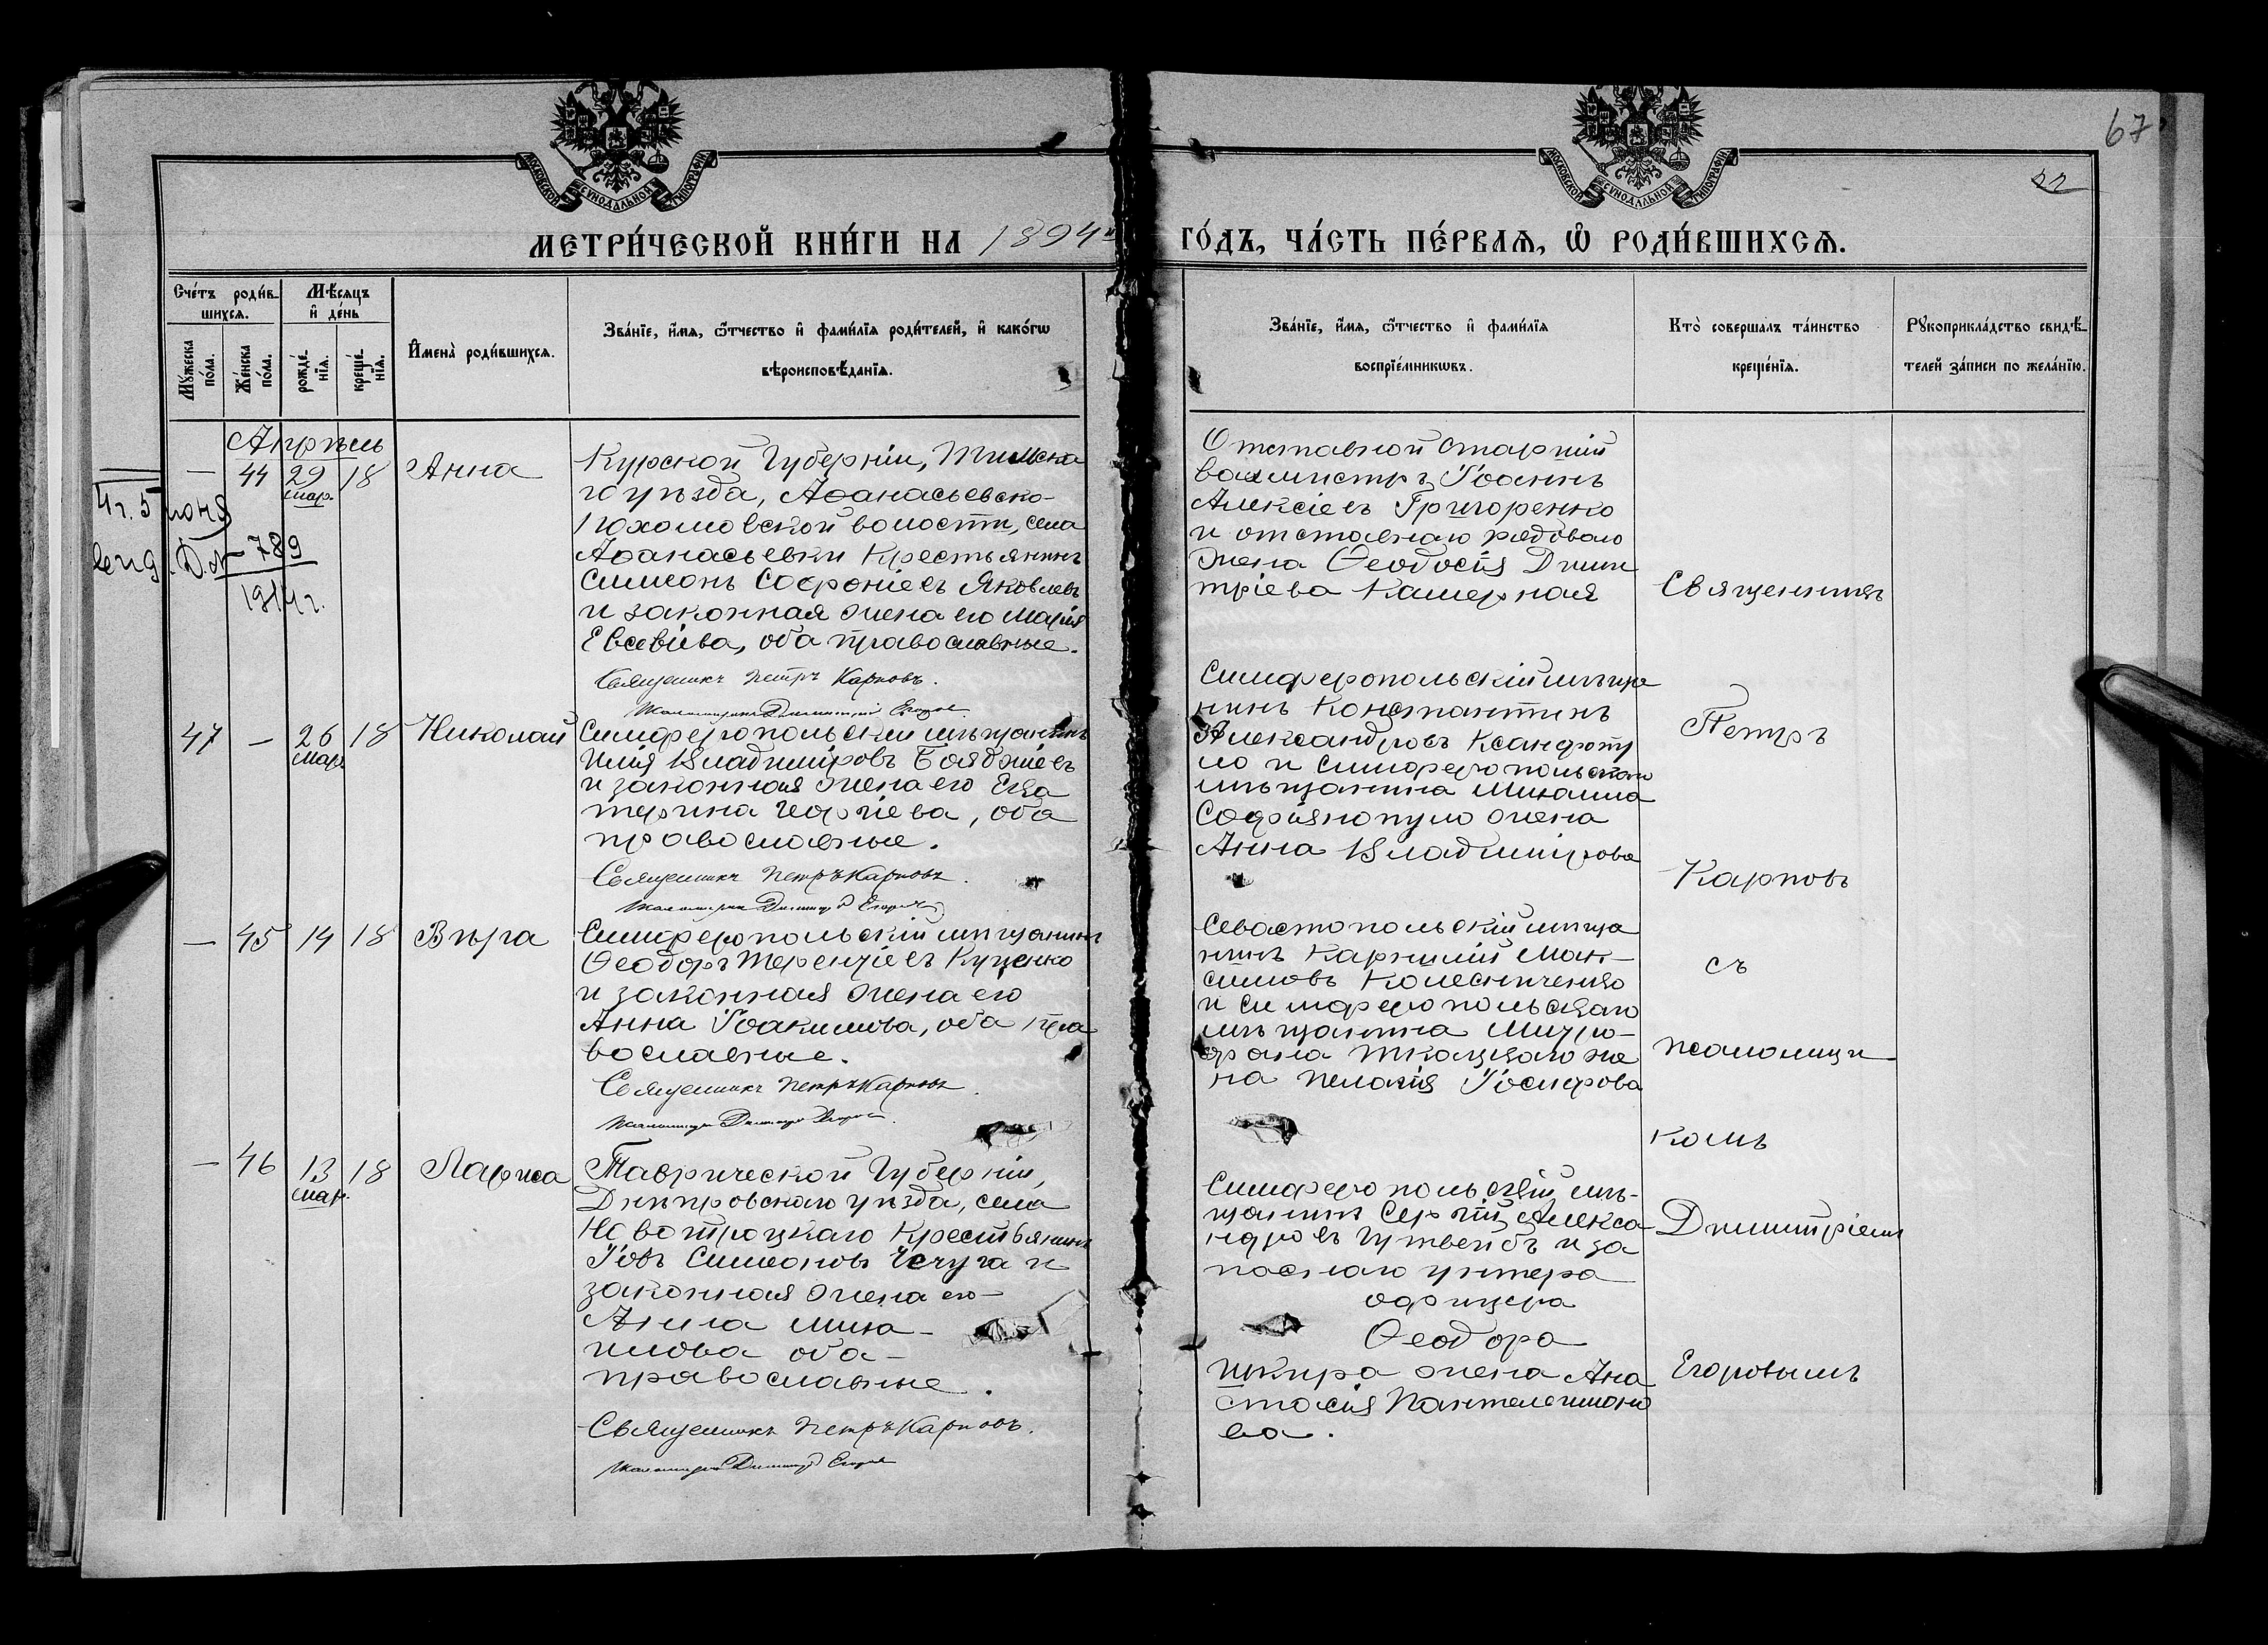 67
22
МОСКОВСКОЙ СѴНОДАЛЬНОЙ ТИПОГРАФІИ
МОСКОВСКОЙ СѴНОДАЛЬНОЙ ТИПОГРАФІИ
МЕТРИ́ЧЕСКОЙ КНИ́ГИ НА 1894й
ГО́ДЪ, ЧА́СТЬ ПЕ́РВАѦ, Ѡ҆ РОДИ́ВШИХСѦ.
Сче́тъ роди́в-
шихсѧ.
Мꙋ́жеска по́ла.
Же́нска по́ла.
Мѣ́сѧцъ
и҆ де́нь
рожде́-
нїѧ.
креще́-
нїѧ.
И҆мена̀ роди́вшихсѧ.
Зва́нїе, и҆́мѧ, ѻ҆́тчество и҆ фами́лїѧ роди́телей, и҆ како́гѡ
вѣроисповѣ́данїѧ.
Зва́нїе, и҆́мѧ, ѻ҆́тчество и҆ фами́лїѧ
воспрїе́мникѡвъ.
Кто̀ соверша́лъ та́инство
креще́нїѧ.
Рꙋкоприкла́дство свидѣ́-
телей за́писи по жела́нїю.
Апрѣль
— 44 29 18 Анна
мар.
789
1914 г.
Курской Губерніи, Тимска
го уѣзда, Аѳанасьевско-
Пахомовской волости, села
Аѳанасьевки Крестьянинъ
Симеонъ Софроніевъ Яковлевъ
и законная жена его Марія
Евсевіева, оба православные.
Священникъ Петръ Карповъ.
Псаломщикъ Димитрій Егоровъ
Отставной старшій
вахмистръ Іоаннъ
Алексіевъ Григоренко
и отставнаго рядоваго
жена Ѳеодосія Дими
тріева Камерная
47 — 26 18 Николай
мар.
Симферопольскій мѣщанинъ
Илія Владиміровъ Бояджіевъ
и законная жена его Ека
терина Георгіева, оба
православные.
Священникъ Петръ Карповъ.
Псаломщикъ Димитрій Егоровъ
Симферопольскій мѣща
нинъ Константинъ
Александровъ Ксандопу
ло и симферопольскаго
мѣщанина Михаила
Софіянопуло жена
Анна Владимірова
— 45 14 18 Вѣра
Симферопольскій мѣщанинъ
Ѳеодоръ Терентіевъ Куценко
и законная жена его
Анна Іоакимова, оба пра
вославные.
Священникъ Петръ Карповъ.
Псаломщикъ Димитрій Егоровъ.
Севастопольскій мѣща
нинъ Карпъ Мак-
симовъ Колесниченко
и симферопольскаго
мѣщанина Митро-
фана Ткацкаго же
на Пелагія Іосифова
— 46 13 18 Лариса
мар.
Таврической Губерніи,
Днѣпровскаго уѣзда, села
Новотроцкаго Крестьянинъ
Іовъ Симеоновъ Чечуга и
законная жена его
Анна Миха-
илова оба
православные.
Священникъ Петръ Карповъ.
Псаломщикъ Димитрій Егоровъ
Симферопольскій мѣ-
щанинъ Сергій Алекса-
ндровъ Гутвейбъ и за
паснаго унтера
офицера
Ѳеодора
Шкира жена Ана
стасія Пантелеимоно
ва.
Священникъ
Петръ
Карповъ
съ
псаломщи
комъ
Димитріемъ
Егоровымъ